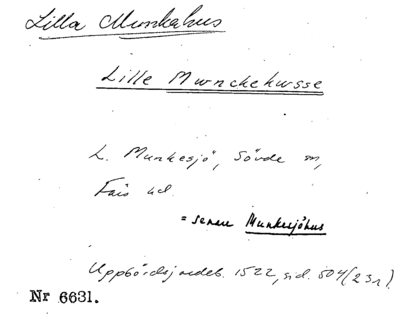 Lilla Munkahus
Lille Mwnckehwsse
L. Munkesjö, Sövde sn,
Färs hd.
= senare Munkesjöhus
Uppbördsjordeb. 1522, sid. 504 (231)
Nr 6631.